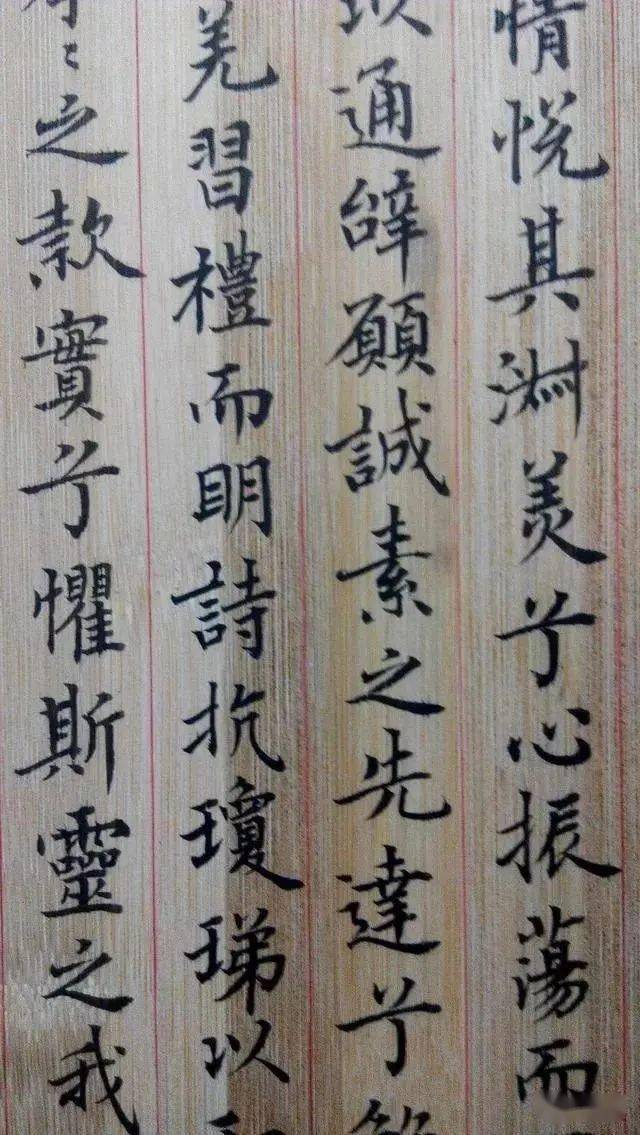 情悦其淑美兮心振蕩而
以通辝願誠素之先達兮
羌習禮而眀詩抗瓊珶以
之款實兮懼斯靈之我